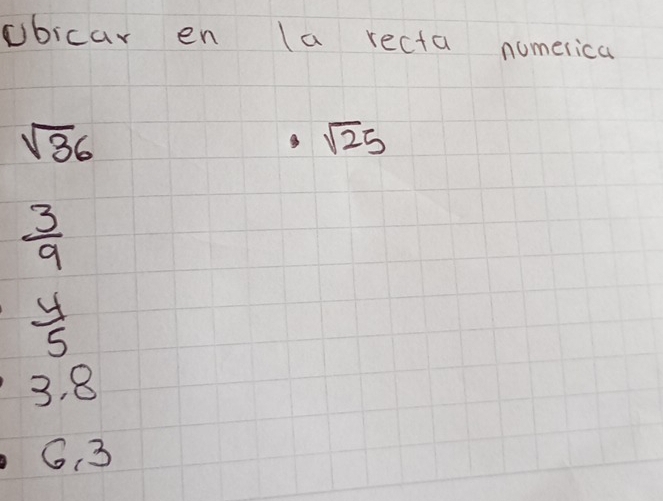 Ubicar en la recta numerica
√36 • √25
3/9
• 4/5
• 3,8
• 6,3